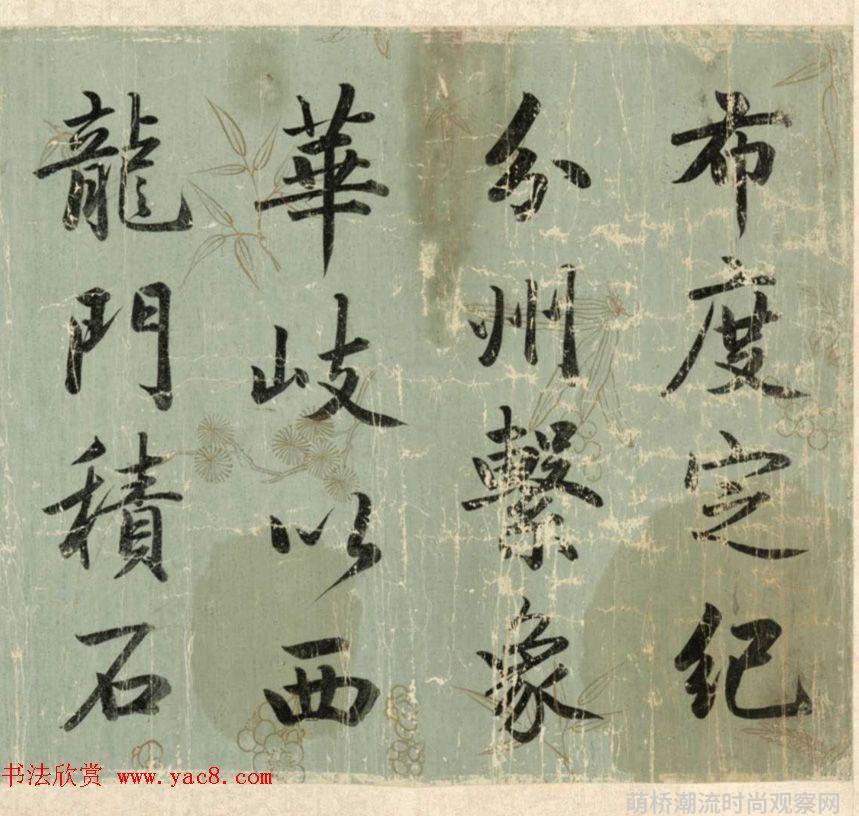 布度定紀
分州繫象
華岐以西
龍門積石
书法欣赏 www.yac8.com
萌桥潮流时尚观察网